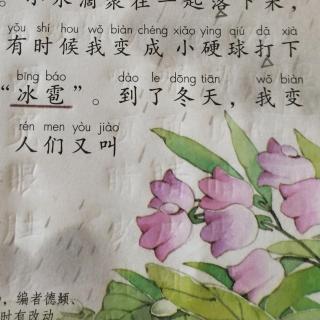 小水滴聚在一起落下来，
yǒu shí hou wǒ biàn chéng xiǎo yìng qiú dǎ xià
有时候我变成小硬球打下
bīng báo dào le dōng tiān wǒ biàn
“冰雹”。到了冬天，我变
rén men yòu jiào
人们又叫
，编者德颢、
时有改动